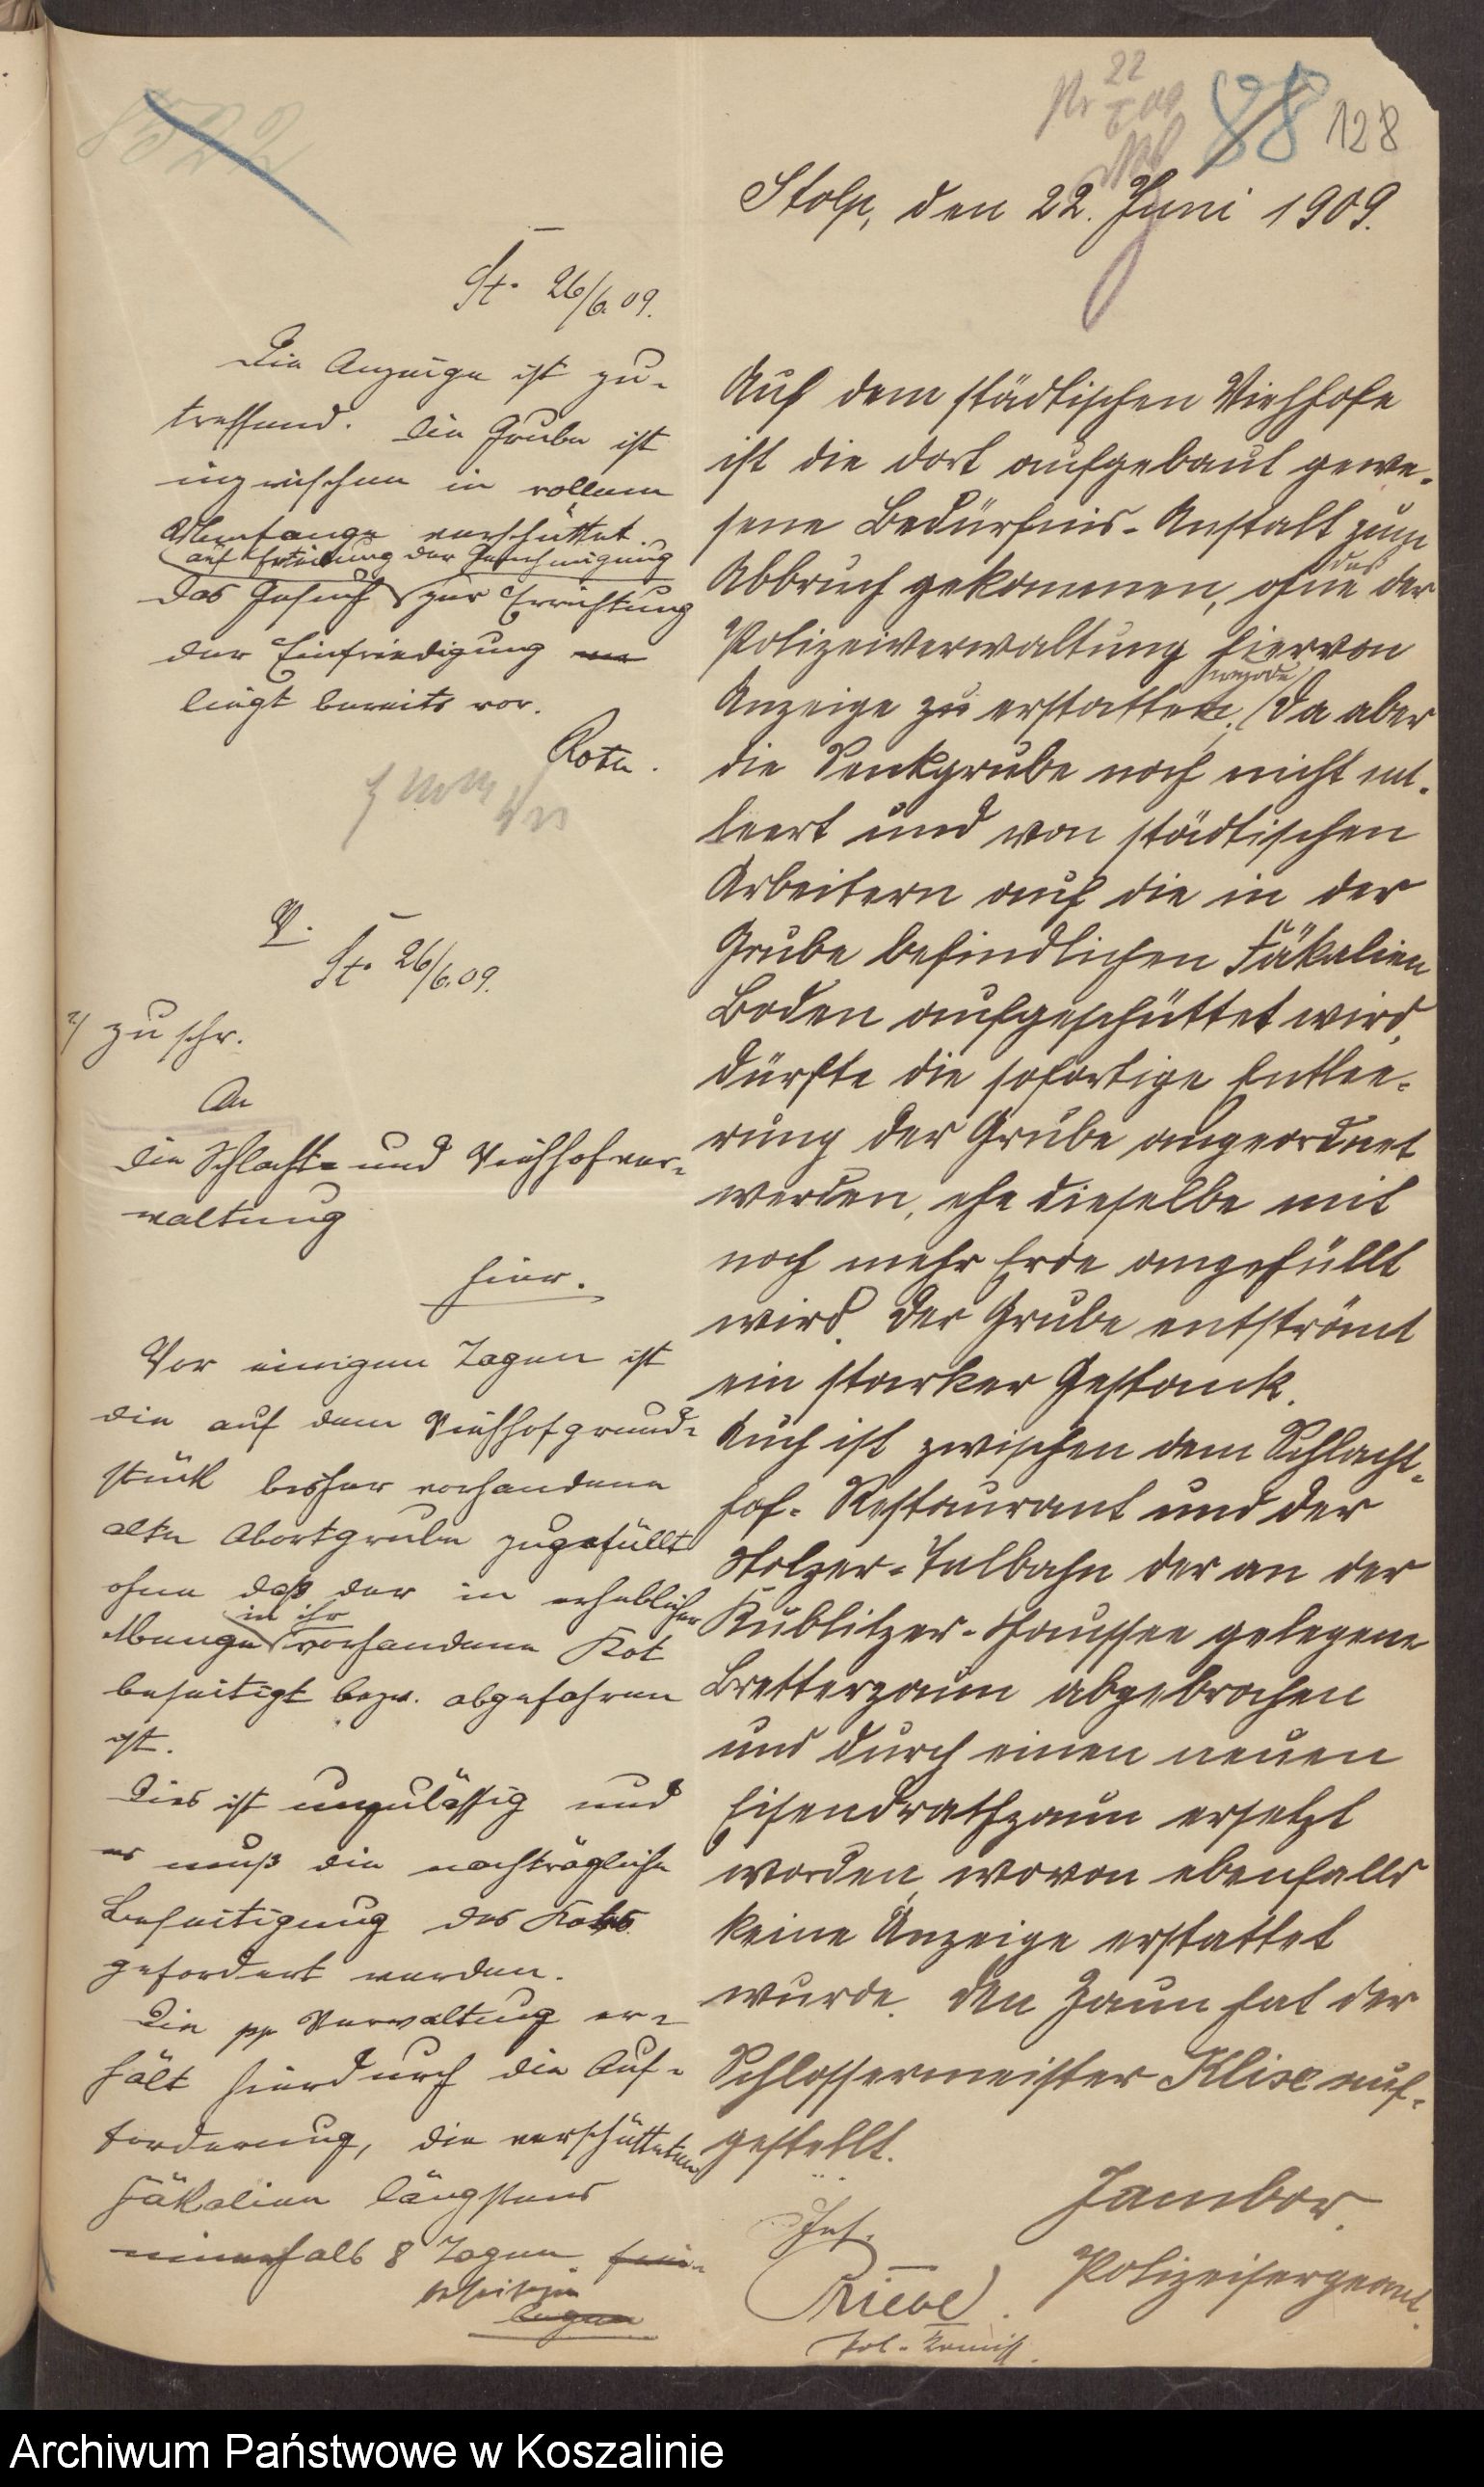 88 128
Stolp, den 22. Juni 1909.
Auf dem städtischen Viehhofe
ist die dort aufgebaut gewe-
sene Bedürfnis-Anstalt zum
Abbruch gekommen, ohne daß der
Polizeiverwaltung hiervon
Anzeige zu erstatten wurde. Da aber
die Senkgrube noch nicht ent-
leert und von städtischen
Arbeitern auf die in der
Grube befindlichen Fäkalien
Boden aufgeschüttet wird,
dürfte die sofortige Entlee-
rung der Grube angeordnet
werden, ehe dieselbe mit
noch mehr Erde angefüllt
wird. Der Grube entströmt
ein starker Gestank.
Auch ist zwischen dem Schlacht-
hof-Restaurant und der
Stolzer-Talbahn der an der
Kublitzer-Chaussee gelegene
Bretterzaun abgebrochen
und durch einen neuen
Eisendrathzaun ersetzt
worden, wovon ebenfalls
keine Anzeige erstattet
wurde. Den Zaun hat der
Schlossermeister Klix auf-
gestellt.
Jambor.
Polizeisergeant.
Ges.
Priebe
Pol.-Komiss.
St. 26/6.09.
Die Anzeige ist zu-
treffend. Die Grube ist
inzwischen in vollem
Umfange verschüttet.
auf Erteilung der Genehmigung
Das Gesuch zur Errichtung
der Einfriedigung
liegt bereits vor.
V.
St. 26/6.09.
zu schr.
An
die Schlacht- und Viehhofver-
waltung
hier.
Vor einigen Tagen ist
die auf dem Viehhofgrund-
stück bisher vorhandene
alte Abortgrube zugefüllt
ohne daß der in erheblicher
Menge in ihr vorhandene Kot
beseitigt bezw. abgefahren
ist.
Dies ist unzulässig und
es muß die nachträgliche
Beseitigung des Kotes
gefordert werden.
Die pp Verwaltung er-
hält hierdurch die Auf-
forderung, die verschütteten
Fäkalien längstens
innerhalb 8 Tagen